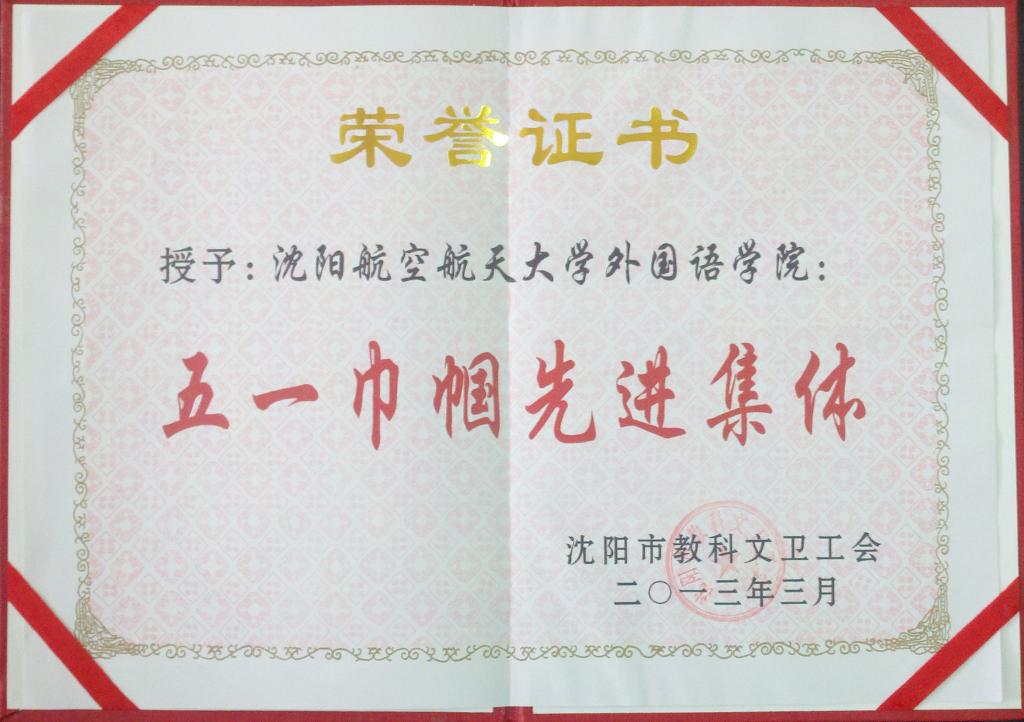 荣誉证书
授予：沈阳航空航天大学外国语学院：
五一巾帼先进集体
沈阳市教科文卫工会
二〇一三年三月